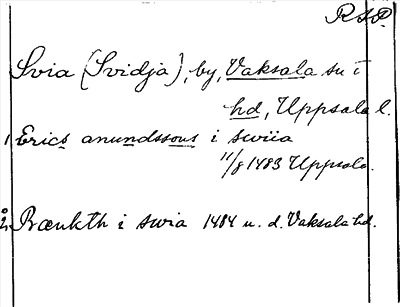 RAP.
Svia (Svidja), by, Vaksala sn i
hd, Uppsala l.
1 Erics anundssons i swiia
11/8 1483 Uppsala.
Prænkth i swia 1484 u. d. Vaksala hd.